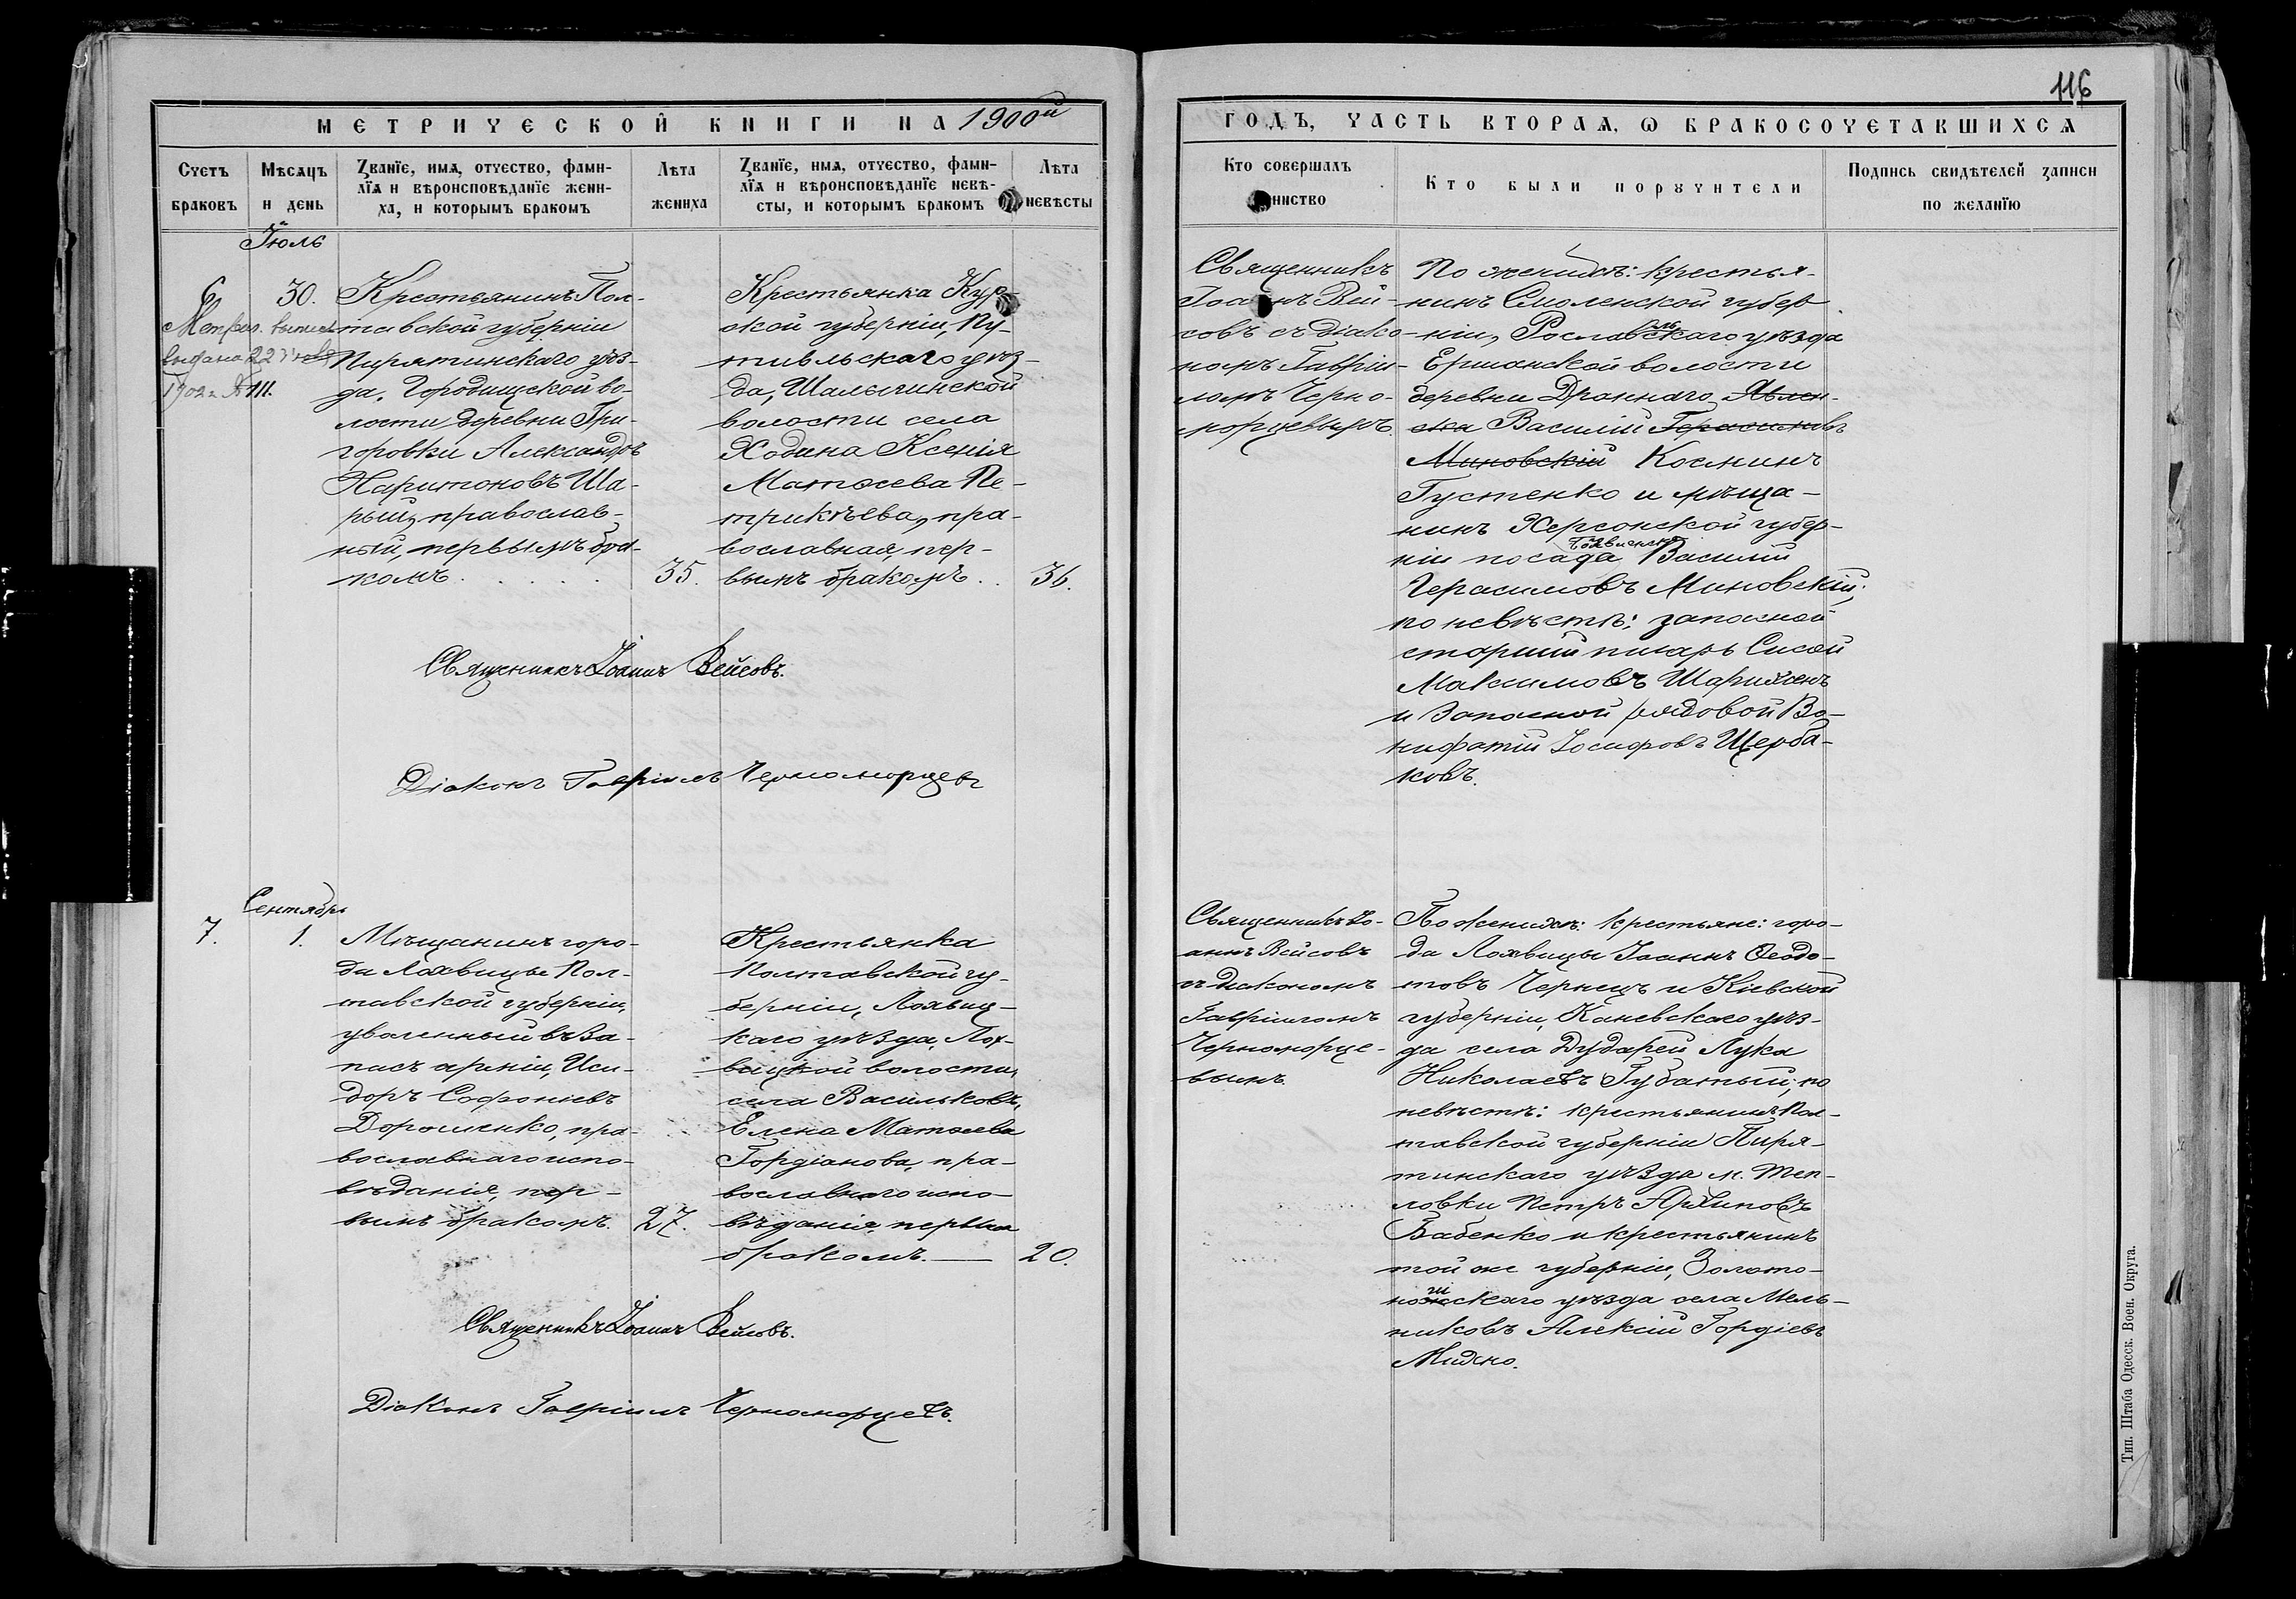 116
МЕТРИЧЕСКОЙ КНИГИ НА 1900й
ГОДЪ, ЧАСТЬ ВТОРАѦ, Ѡ БРАКОСОЧЕТАВШИХСѦ
Счетъ браковъ
Мѣсѧцъ и день
Званїе, имѧ, отчество, фами-
лїѧ и вѣроисповѣданїе жени-
ха, и которымъ бракомъ
Лѣта жениха
Званїе, имѧ, отчество, фами-
лїѧ и вѣроисповѣданїе невѣ-
сты, и которымъ бракомъ
Лѣта невѣсты
Кто совершалъ
Кто были поручители
Подпись свидѣтелей записи
по желанїю
Іюль
6
30.
выдано 22
1902 г. № 111.
Крестьянинъ Пол-
тавской губерніи
Пирятинскаго уѣз-
да, Городищской во-
лости, деревни Гри-
горовки Александръ
Харитоновъ Ша-
рый, православ-
ный, первымъ бра-
комъ
35.
Крестьянка Кур-
ской губерніи, Пу-
тивльскаго уѣз-
да, Шалыгинской
волости села
Ходина Ксенія
Матѳеева Пе-
трикѣева, пра-
вославная, пер-
вымъ бракомъ
36.
Священникъ Іоаннъ Вейсовъ.
Діаконъ Гавріилъ Черноморцевъ
Священникъ
Іоаннъ Вей-
совъ съ діако-
номъ Гавріи-
ломъ Черно-
морцевымъ.
По женихѣ: крестья-
нинъ Смоленской губер
ніи, Рославльскаго уѣзда
Ершанской волости
деревни
Василій Герасимовъ
Миновскій Косминъ
Густенко и мѣща-
нинъ Херсонской губер-
ніи посада Василій
Герасимовъ Миновскій;
по невѣстѣ: запасной
старшій писарь Сисой
Максимовъ
и запасной рядовой Во-
нифатій Іосифовъ Щерба-
ковъ.
Сентябрь
7.
1.
Мѣщанинъ горо-
да Лохвицы Пол-
тавской губерніи,
уволенный въ за-
пасъ арміи, Иси-
доръ Софроніевъ
Дорошенко, пра-
вославнаго испо-
вѣданія, пер-
вымъ бракомъ.
27.
Крестьянка
Полтавской гу-
берніи, Лохвиц-
каго уѣзда, Лох-
вицкой волости,
села Васильковъ,
Елена Матѳеева
Гордіанова, пра-
вославнаго испо-
вѣданія, первым
бракомъ.
20.
Священникъ Іоаннъ Вейсовъ.
Діаконъ Гавріилъ Черноморцевъ.
Священникъ Іо-
аннъ Вейсовъ
съ діакономъ
Гавріиломъ
Черноморце-
вымъ.
По женихѣ: крестьяне: горо-
да Лохвицы Іоаннъ Ѳеодо-
товъ Чернецъ и Кіевской
губерніи, Каневскаго уѣз-
да села Дударей Лука
Николаевъ Губатый; по
невѣстѣ: крестьянинъ Пол-
тавской губерніи Пиря-
тинскаго уѣзда м. Теп-
ловки Петръ Архиповъ
Бабенко и крестьянинъ
той же губерніи, Золото-
ношскаго уѣзда села Мель-
никовъ Алексій Гордіевъ
Михно.
Тип. Штаба Одесск. Воен. Округа.